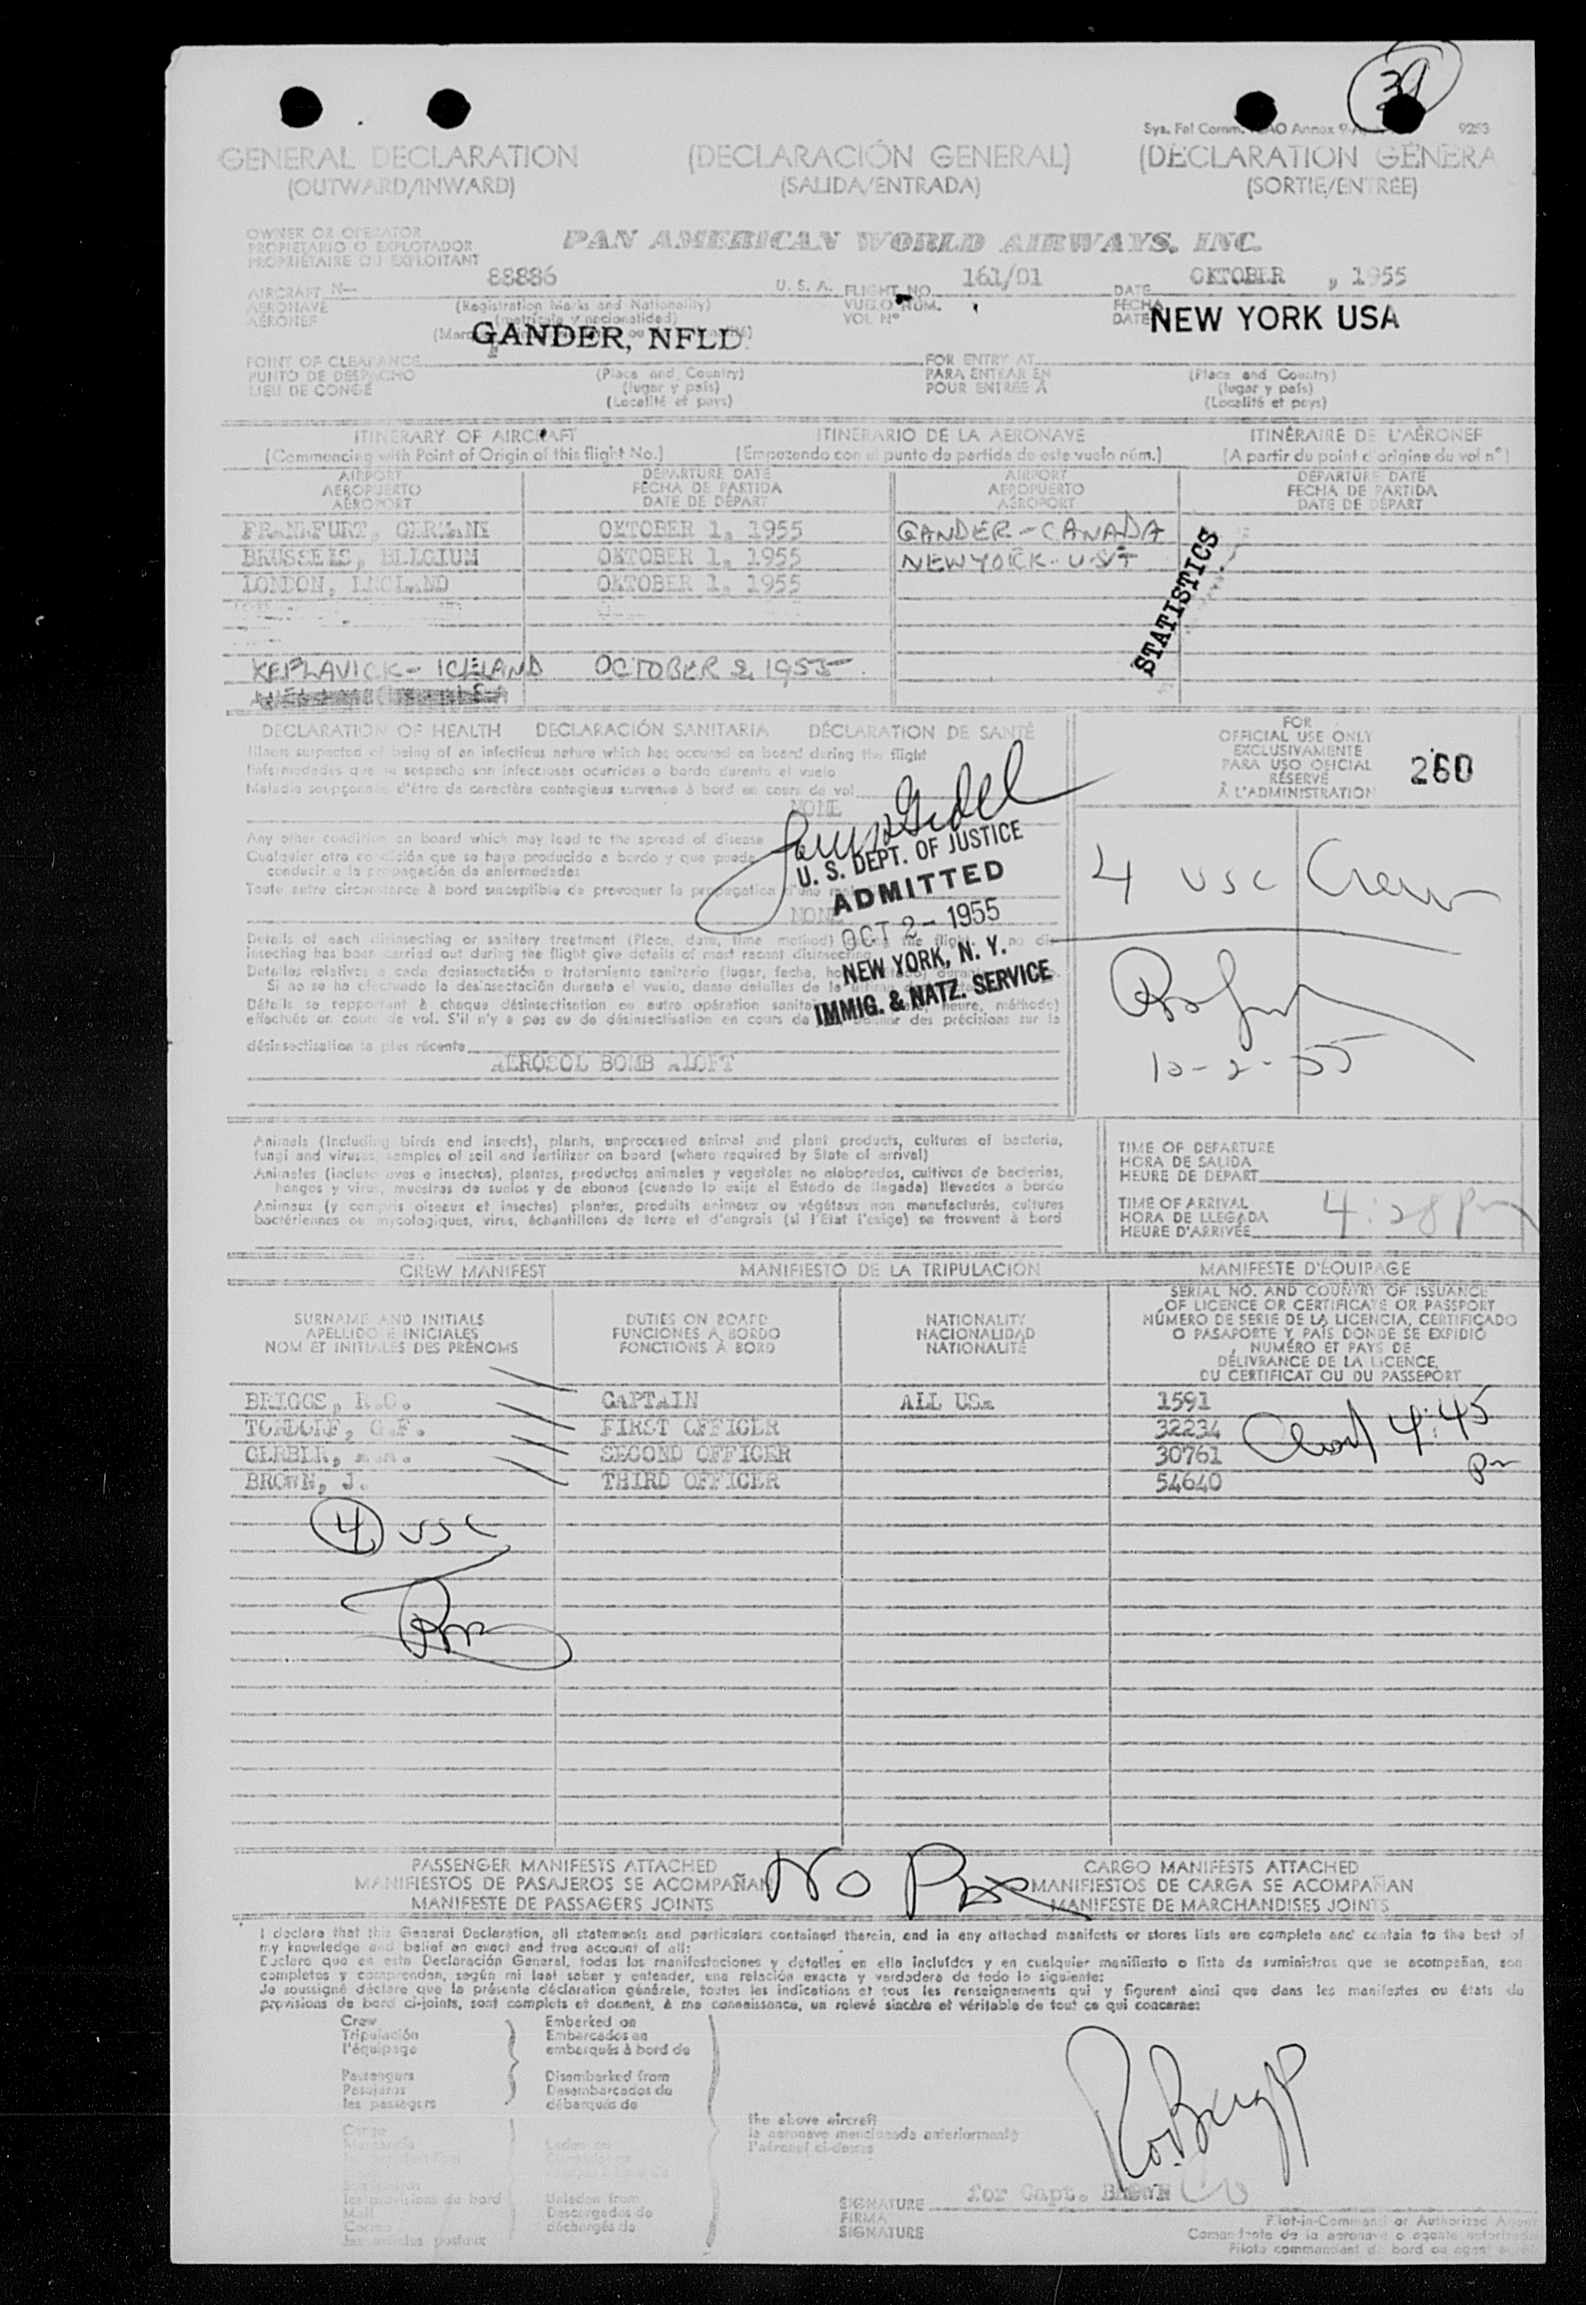 39
Sys. Fel Comm. ICAO Annex 9 9253
GENERAL DECLARATION (DECLARACIÓN GENERAL) (DÉCLARATION GÉNÉRA
(OUTWARD/INWARD) (SALIDA/ENTRADA) (SORTIE/ENTRÉE)
OWNER OR OPERATOR
PROPIETARIO O EXPLOTADOR
PROPRIÉTAIRE OU EXPLOITANT
PAN AMERICAN WORLD AIRWAYS, INC.
AIRCRAFT N— 88886 U. S. A. FLIGHT NO. 161/01 DATE OKTOBER , 1955
AERONAVE (Registration Marks and Nationality) VUELO NUM. FECHA
AÉRONEF (matrícula y nacionalidad) VOL Nº DATE
GANDER, NFLD. NEW YORK USA
POINT OF CLEARANCE FOR ENTRY AT
PUNTO DE DESPACHO (Place and Country) PARA ENTRAR EN (Place and Country)
LIEU DE CONGÉ (lugar y país) POUR ENTRÉE À (lugar y país)
(Localité et pays) (Localité et pays)
ITINERARY OF AIRCRAFT ITINERARIO DE LA AERONAVE ITINÉRAIRE DE L'AÉRONEF
(Commencing with Point of Origin of this flight No.) (Empezando con el punto de partida de este vuelo núm.) (A partir du point d'origine du vol nº)
AIRPORT DEPARTURE DATE AIRPORT DEPARTURE DATE
AEROPUERTO FECHA DE PARTIDA AEROPUERTO FECHA DE PARTIDA
AÉROPORT DATE DE DÉPART AÉROPORT DATE DE DÉPART
FRANKFURT, GERMANY OKTOBER 1, 1955 GANDER - CANADA
BRUSSELS, BELGIUM OKTOBER 1, 1955 NEW YORK - USA
LONDON, ENGLAND OKTOBER 1, 1955
STATISTICS
KEFLAVICK - ICELAND OCTOBER 2, 1955
DECLARATION OF HEALTH DECLARACIÓN SANITARIA DÉCLARATION DE SANTÉ
Illness suspected of being of an infectious nature which has occured on board during the flight
Enfermedades que se sospecha son infecciosas ocurridas a bordo durante el vuelo
Maladie soupçonnée d'être de caractère contagieux survenue à bord en cours de vol
NONE
Any other condition on board which may lead to the spread of disease
Cualquier otra condición que se haya producido a bordo y que puede
conducir a la propagación de enfermedades
Toute autre circonstance à bord susceptible de provoquer la propagation d'une
NONE
U. S. DEPT. OF JUSTICE
ADMITTED
OCT 2 - 1955
NEW YORK, N. Y.
IMMIG. & NATZ. SERVICE
FOR
OFFICIAL USE ONLY
EXCLUSIVAMENTE
PARA USO OFICIAL
RÉSERVÉ
À L'ADMINISTRATION
260
4 USC Crew
10-2-55
Details of each disinsecting or sanitary treatment (Place, date, time method) during the flight. If no dis-
insecting has been carried out during the flight give details of most recent disinsecting
Detalles relativos a cada desinsectación o tratamiento sanitario (lugar, fecha, hora,
Si no se ha efectuado la desinsectación durante el vuelo, dense detalles de la última
Détails se rapportant à chaque désinsectisation ou autre opération sanitaire heure, méthode)
effectuée en cours de vol. S'il n'y a pas eu de désinsectisation en cours de donner des précisions sur la
désinsectisation la plus récente
AEROSOL BOMB ALOFT
Animals (Including birds and insects), plants, unprocessed animal and plant products, cultures of bacteria,
fungi and viruses, samples of soil and fertilizer on board (where required by State of arrival)
Animales (incluso aves e insectos), plantas, productos animales y vegetales no elaborados, cultivos de bacterias,
hongos y virus, muestras de suelos y de abonos (cuando lo exija el Estado de llegada) llevados a bordo
Animaux (y compris oiseaux et insectes) plantes, produits animaux ou végétaux non manufacturés, cultures
bactériennes ou mycologiques, virus, échantillons de terre et d'engrais (si l'État l'exige) se trouvent à bord
TIME OF DEPARTURE
HORA DE SALIDA
HEURE DE DÉPART
TIME OF ARRIVAL
HORA DE LLEGADA
HEURE D'ARRIVÉE
4:28 pm
CREW MANIFEST MANIFIESTO DE LA TRIPULACIÓN MANIFESTE D'ÉQUIPAGE
SURNAME AND INITIALS DUTIES ON BOARD NATIONALITY
APELLIDO E INICIALES FUNCIONES A BORDO NACIONALIDAD
NOM ET INITIALES DES PRÉNOMS FONCTIONS À BORD NATIONALITÉ
SERIAL NO. AND COUNTRY OF ISSUANCE
OF LICENCE OR CERTIFICATE OR PASSPORT
NÚMERO DE SERIE DE LA LICENCIA, CERTIFICADO
O PASAPORTE Y PAÍS DONDE SE EXPIDIÓ
NUMÉRO ET PAYS DE
DÉLIVRANCE DE LA LICENCE,
DU CERTIFICAT OU DU PASSEPORT
BRIGGS, R.O. CAPTAIN ALL USA 1591
TORDOFF, G.F. FIRST OFFICER 32234
GERBER, SECOND OFFICER 30761
BROWN, J. THIRD OFFICER 54640
4:45 pm
4 USC
PASSENGER MANIFESTS ATTACHED CARGO MANIFESTS ATTACHED
MANIFIESTOS DE PASAJEROS SE ACOMPAÑAN No Pax MANIFIESTOS DE CARGA SE ACOMPAÑAN
MANIFESTE DE PASSAGERS JOINTS MANIFESTE DE MARCHANDISES JOINTS
I declare that this General Declaration, all statements and particulars contained therein, and in any attached manifests or stores lists are complete and contain to the best of
my knowledge and belief an exact and true account of all:
Declaro que en esta Declaración General, todas las manifestaciones y detalles en ella incluídos y en cualquier manifiesto o lista de suministros que se acompañan, son
completos y comprenden, según mi leal saber y entender, una relación exacta y verdadera de todo lo siguiente:
Je soussigné déclare que la présente déclaration générale, toutes les indications et tous les renseignements qui y figurent ainsi que dans les manifestes ou états de
provisions de bord ci-joints, sont complets et donnent, à ma connaissance, un relevé sincère et véritable de tout ce qui concerne:
Crew Embarked on
Tripulación Embarcados en
l'équipage embarqués à bord de
Passengers Disembarked from
Pasajeros Desembarcados de
les passagers débarqués de
the above aircraft
la aeronave mencionada anteriormente
l'aéronef ci-dessus
Cargo
les provisions de bord Unladen from
Mail Descargados de
Correo déchargés de
les articles postaux
SIGNATURE for Capt. BROWN
FIRMA
SIGNATURE
Pilot-in-Command or Authorized Agent
Comandante de la aeronave o agente autorizado
Pilote commandant de bord ou agent